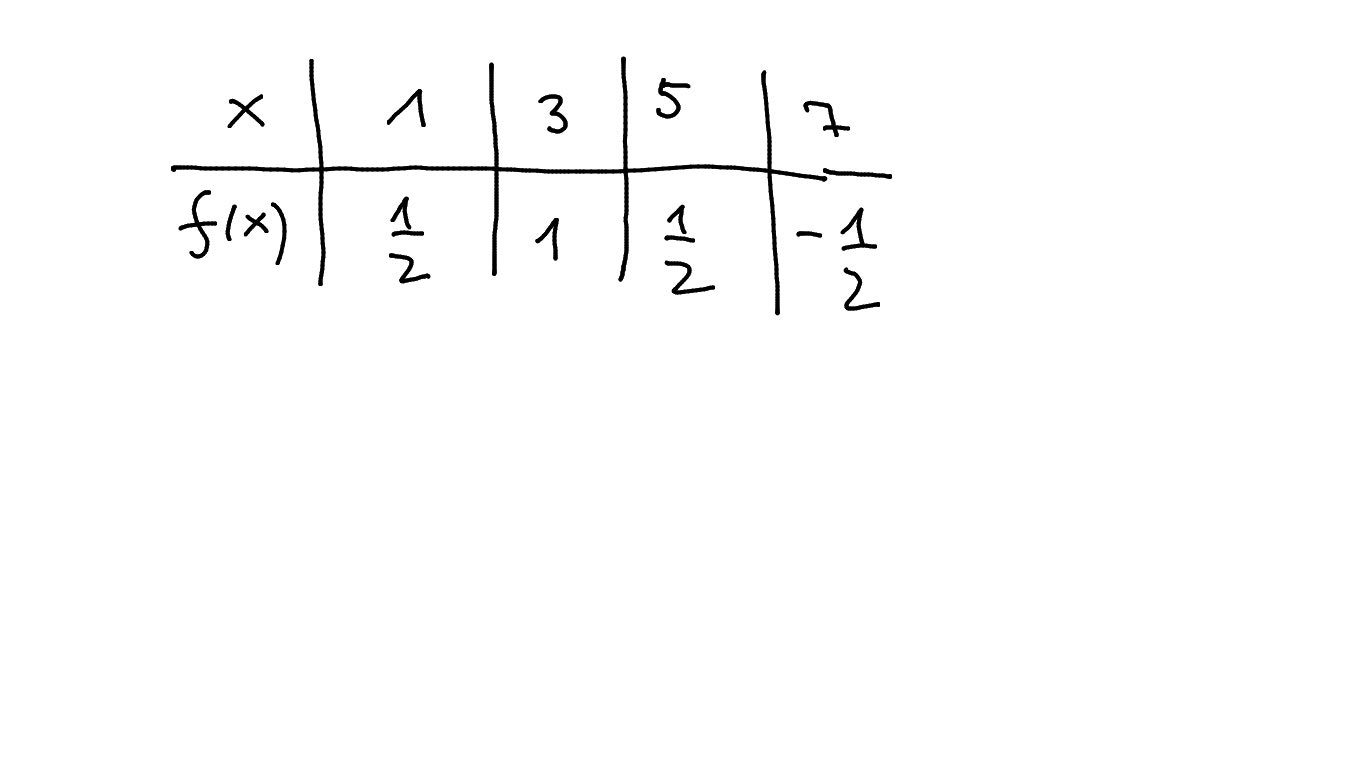 x | 1 | 3 | 5 | 7
f(x) | 1/2 | 1 | 1/2 | - 1/2